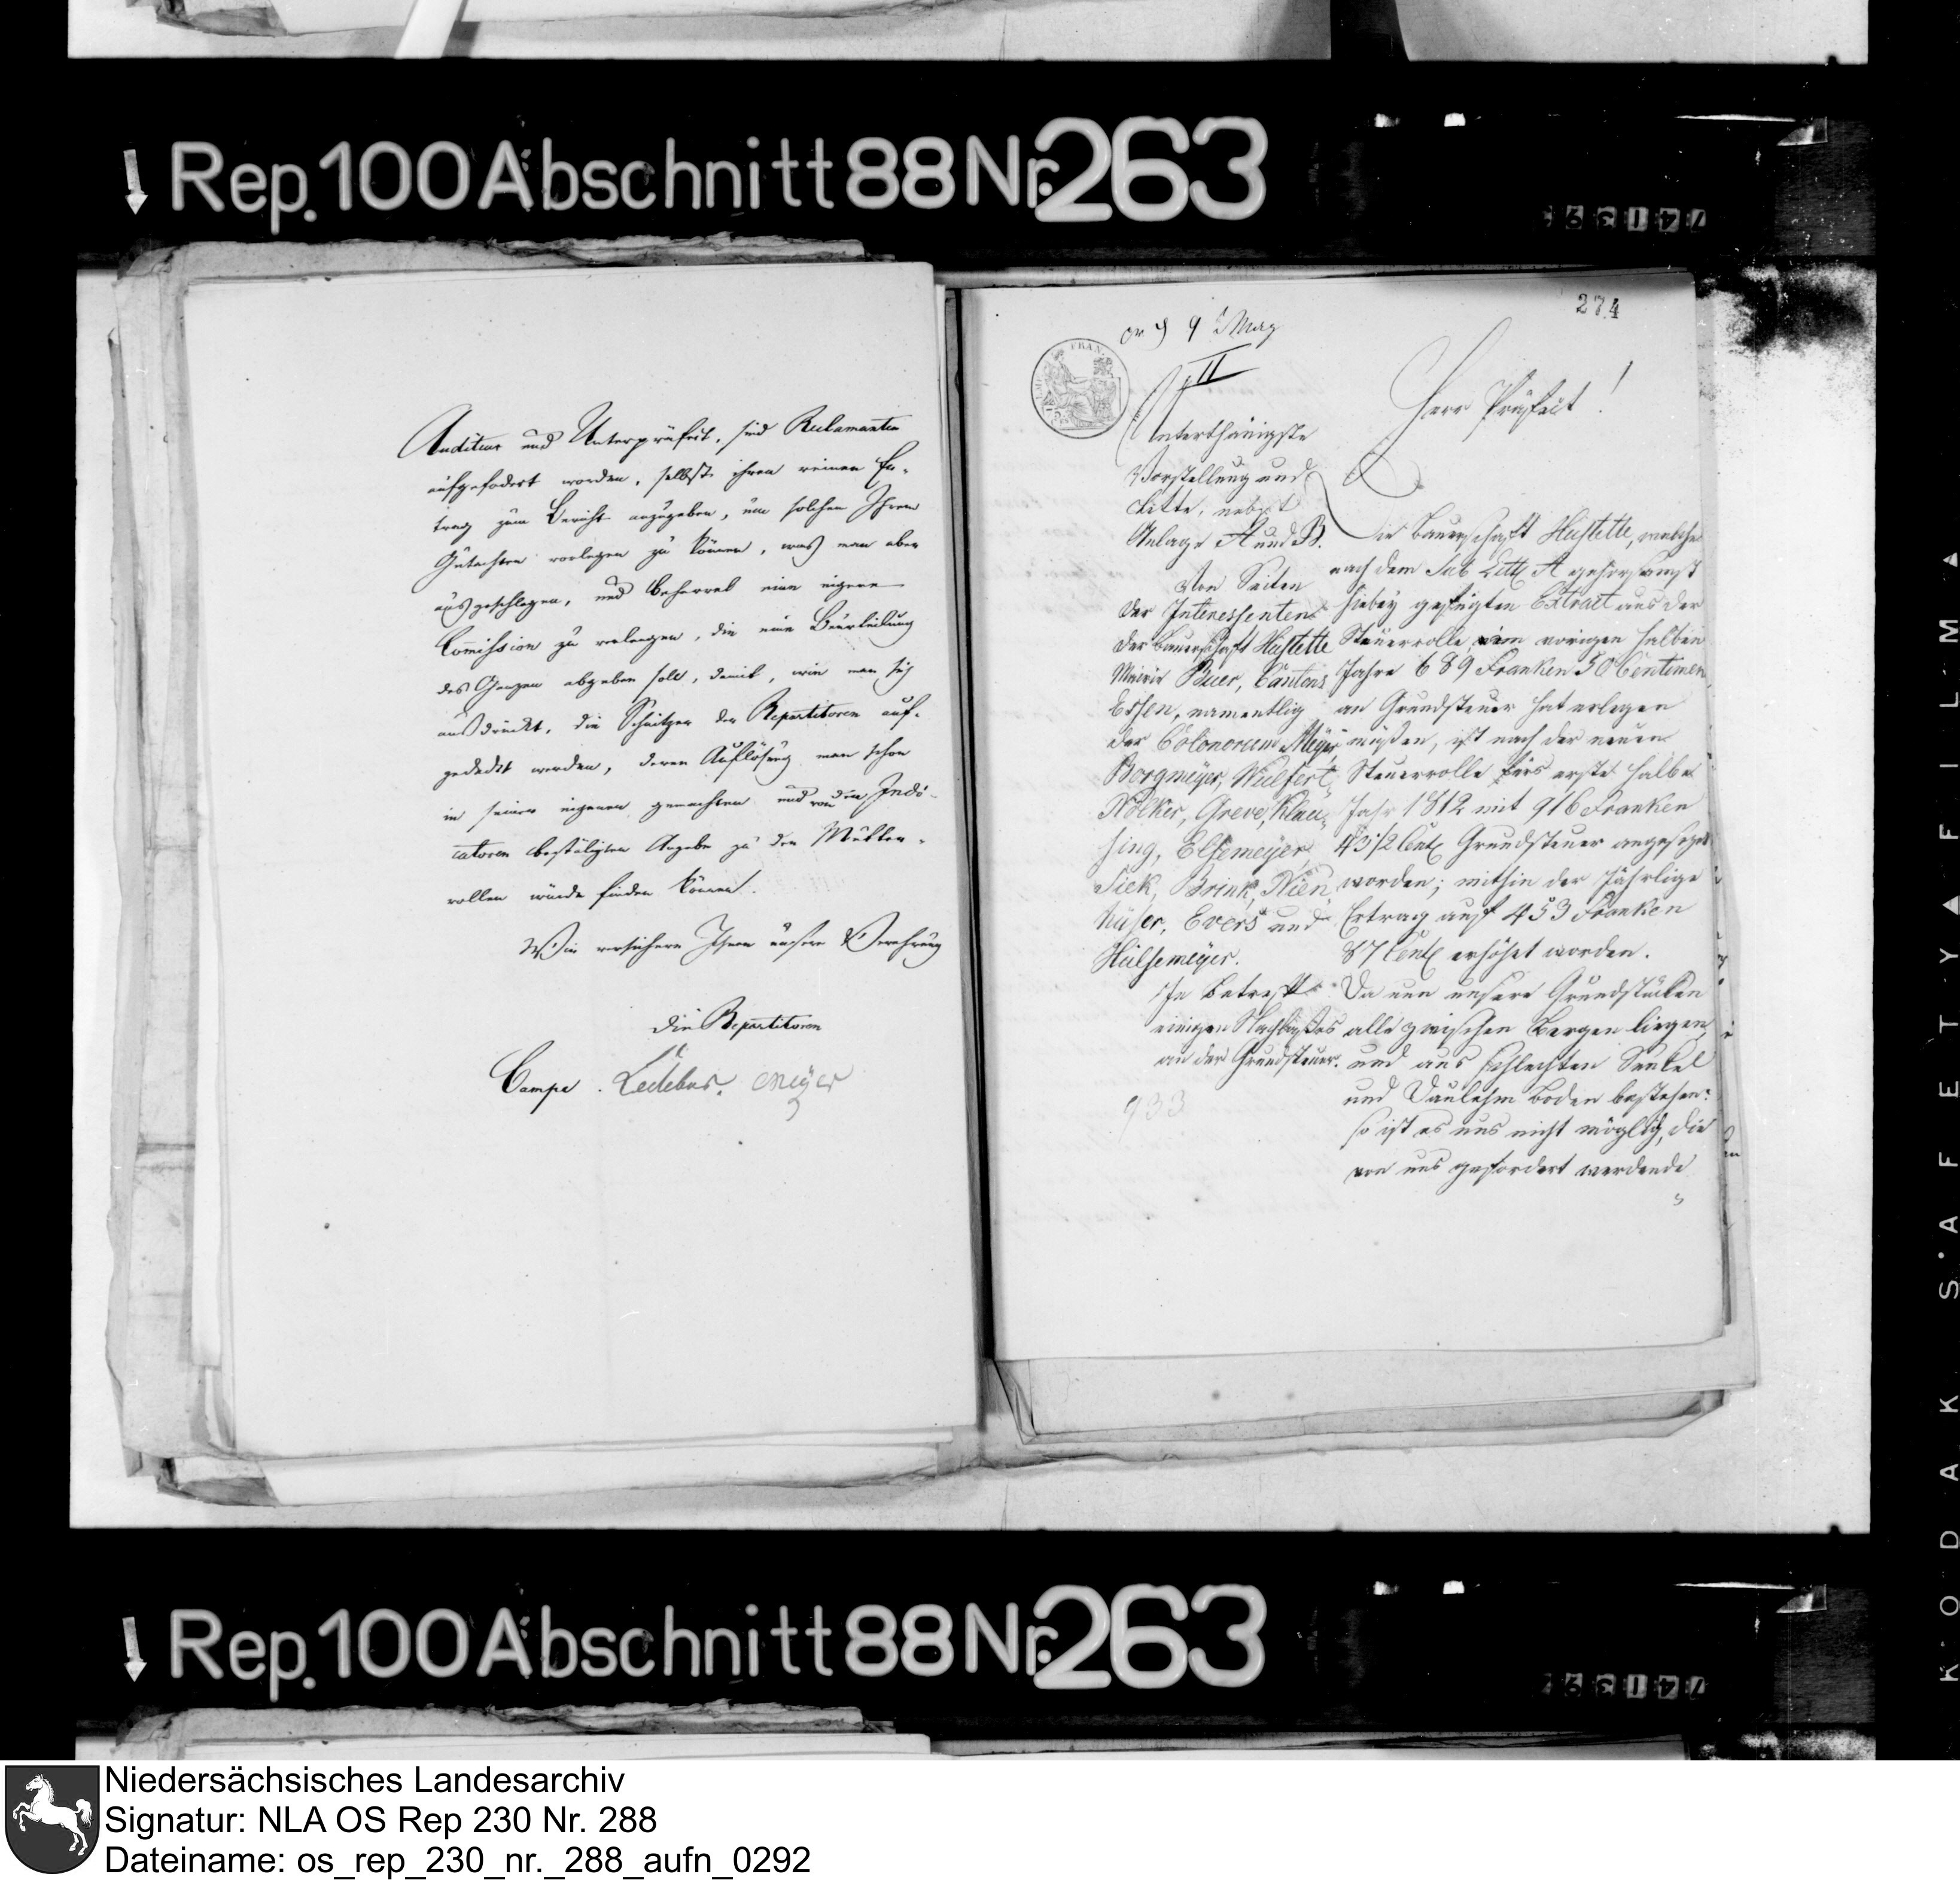 Rep. 100 Abschnitt 88 Nr. 263
Auditeur und Unterpräfect, sind Reclamanten
aufgefodert worden, selbst ihren reinen Er-
trag zum Bericht anzugeben, um solchen Ihrem
Gutachten vorlegen zu können, was man aber
ausgeschlagen, und beharret eine eigene
Comission zu verlangen, die eine Beurtheilung
des Ganzen abgeben soll, damit, wie man sich
ausdrückt, die Schnitzer der Repartitoren auf-
gedeckt werden, deren Auflösung man schon
in seiner eigenen gemachten und von den Indi-
catoren bestätigten Angabe zu den Mutter-
rollen würde finden können.
Wir versichern Ihnen unsere Verehrung
die Repartitoren
Campe. Ledebur. Meÿer
274
9 May
II
Unterthänigste
Vorstellung und
Bitte, nebst
Anlage A und B.
Von Seiten
der Interessenten
der Bauerschaft Hustette
Mairie Buer, Cantons
Essen, namentlig
der Colonorum Meÿer,
Borgmeÿer, Wulfert,
Nölker, Greve, Klau-
sing, Elsemeÿer,
Siek, Brink, Nien-
hüser, Evers und
Hülsemeÿer.
In Betreff
einigen Nachlaßes
an der Grundsteuer.
933
Herr Präfect!
Die Bauerschaft Hustette, welche
nach dem Sub Litt. A gehorsamst
hiebey gefügten Extract aus der
Steuerrolle vom vorigen halben
Jahre 689 Franken 50 Centimen
an Grundsteuer hat erlegen
müßen, ist nach der neuen
Steuerrolle fürs erste halbe
Jahr 1812 mit 916 Franken
43 1/2 Cent. Grundsteuer angesezet
worden; mithin der Jährlige
Ertrag auf 453 Franken
87 Cent. erhöhet worden.
Da nun unsere Grundstücken
alle zwischen Bergen liegen
und aus schlechten Senkel
und Daulehm Boden bestehen:
so ist es uns nicht möglig, die
von uns gefordert werdende
Rep. 100 Abschnitt 88 Nr. 263
KODAK SAFETY FILM
Niedersächsisches Landesarchiv
Signatur: NLA OS Rep 230 Nr. 288
Dateiname: os_rep_230_nr._288_aufn_0292